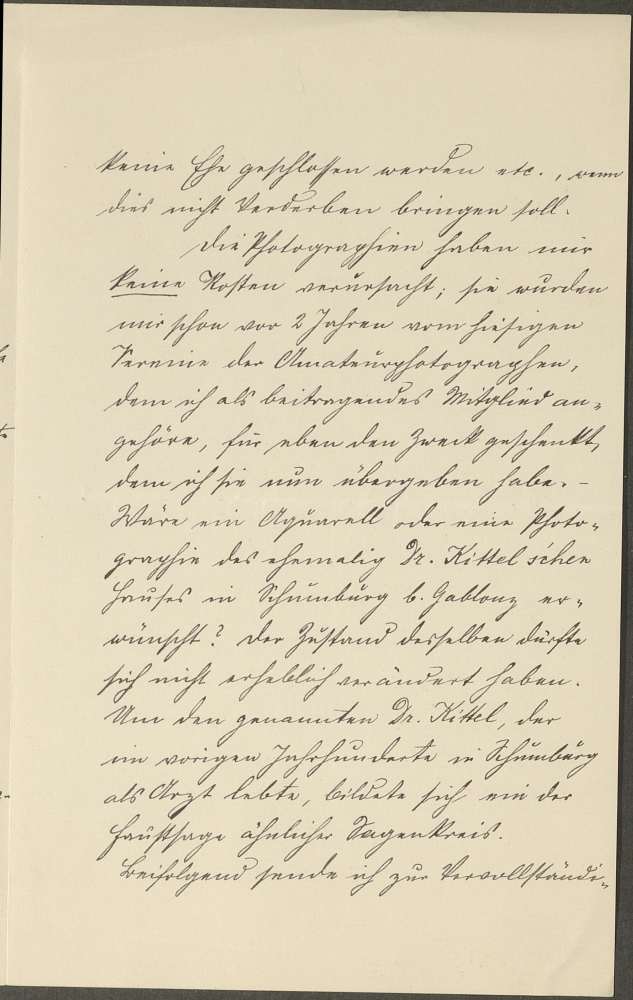 keine Ehe geschlossen werden etc., wenn
dies nicht Verderben bringen soll.
Die Photographien haben mir
keine Kosten verursacht; sie wurden
mir schon vor 2 Jahren vom hiesigen
Vereine der Amateurphotographen,
dem ich als beitragendes Mitglied an-
gehöre, für eben den Zweck geschenkt,
dem ich sie nun übergeben habe. –
Wäre ein Aquarell oder eine Photo-
graphie des ehemalig Dr. Kittel'schen
Hauses in Schumburg b. Gablonz er-
wünscht? Der Zustand desselben dürfte
sich nicht erheblich verändert haben.
Um den genannten Dr. Kittel, der
im vorigen Jahrhunderte in Schumburg
als Arzt lebte, bildete sich ein der
Faustsage ähnlicher Sagenkreis.
Beifolgend sende ich zur Vervollständi-